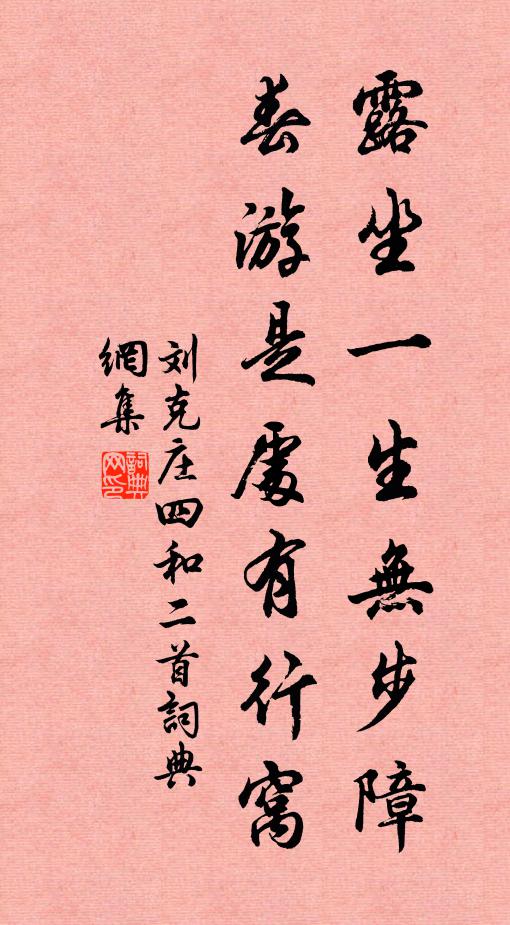 露坐一生無步障
春游是處有行窩
刘克庄四和二首詞典
網集
詞典网印